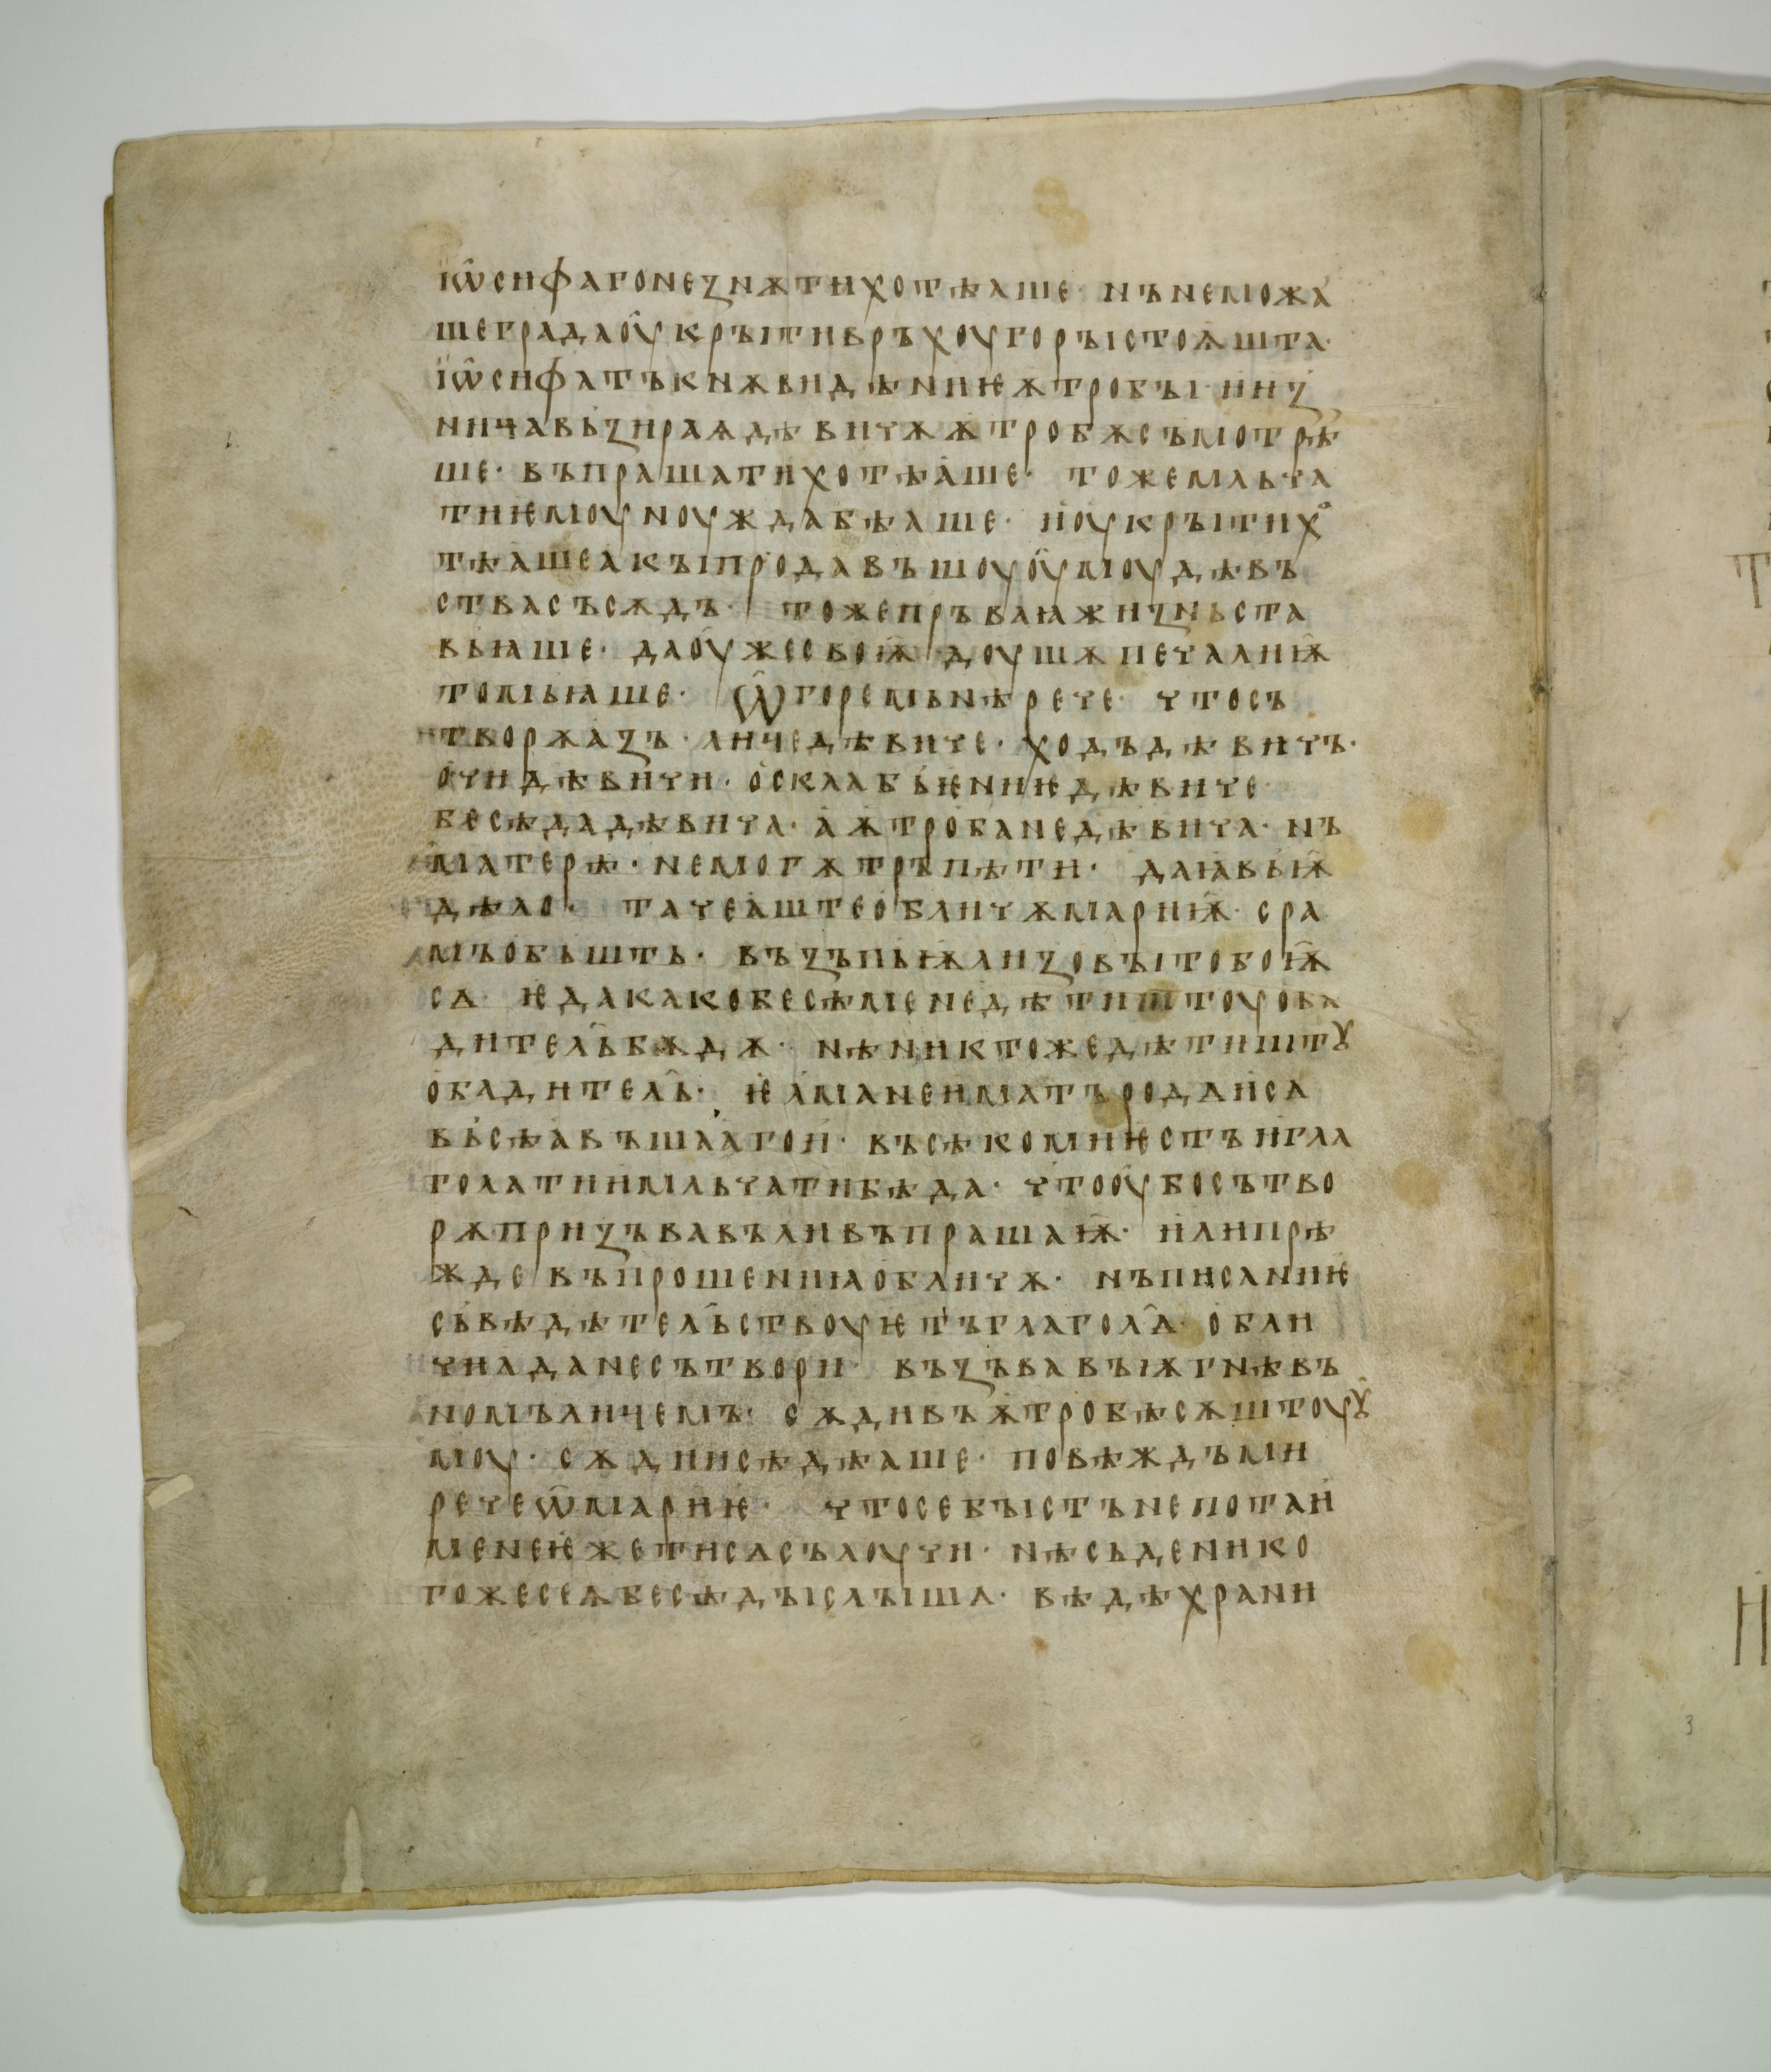 і҅ѡ҃сифагонезнѫтихотѣаше· нънеможа
шеградаоу҅крꙑтиврьхоугорꙑстоѧшта·
і҅ѡ҃сифатъкнѫвидѣниѥѫтробꙑ· ииз
ничавъ҅зираѧдѣвичѫѫ҅тробѫсъмотрѣ
ше· въпрашатихотѣа҅ше· тожемльча
тиѥмоуноуждабѣаше· и҅оукрꙑтихо
тѣа҅шеакꙑпродавъшоуоу҅моудѣвъ
ствасъсѫдъ· тожепрьваꙗжизньста
вьꙗше· даоу҅жесвоѭ҄доушѫпечалниѭ҄
томьꙗше· ѿгоремьнѣрече· чтосъ
творѫазъ· личедѣвиче· ходъдѣвичъ·
очидѣвичи· о҅склабь҅ѥниѥдѣвиче
бесѣдадѣвича· а҅ѫ҅тробанедѣвича· нъ
матерѣ· немогѫтрьпѣти· даꙗ҅вьѭ҄
дѣло· тачеа҅штео҅бличѫмариѭ҄· сра
мъобьшть· възъпьѭ҄лизовꙑтобоѭ҄
сѧ· ѥдакакобесѣменедѣтиштоуоба
дител҄ьбѫдѫ· нѣниктожедѣтиштꙋ
обадител҄ь· ѥ҅лманеиматъродаи҅сѧ
вьсѣа҅въшаа҅гои҅· въсѣкомиѥстъи҅гла
голатиимльчатибѣда· ч҅тооу҅босътво
рѫпризъвавъливъпрашаѭ҄· и҅липрѣ
ждевъпрошениꙗобличѫ· нъписаниѥ
съ҅вѣдѣтел҄ьствоуѥтъглагол҄ѧ· обли
чиѧданесътвори· възъвавꙑѭгнѣвъ
номъличемъ· сѫдивъѫ҅тробѣсѫштоуꙋ҅
моу· сѫдиисѣдѣаше· повѣждъми
речеѡ҅мариѥ҅· чтосебꙑстънепотаи҅
менеѥ҅жетисѧсълоучи· нѣсьденико
гожесеѧбесѣдꙑслꙑша· вѣдѣхрани
3